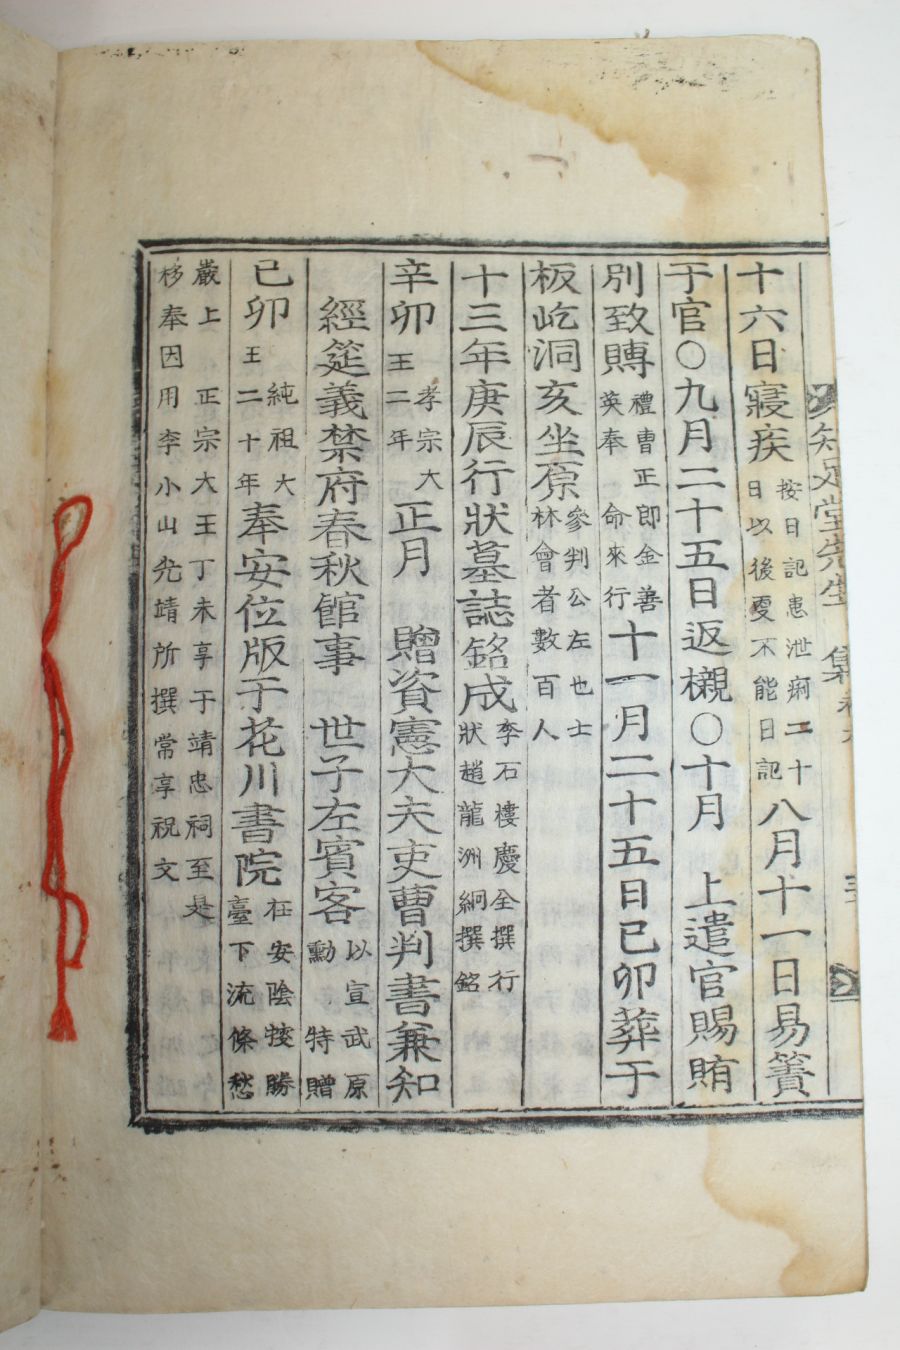 知足堂先生 集
十六日寢疾按日記患泄痢二十日以後憂不能日記八月十一日易簀
于官○九月二十五日返櫬○十月 上遣官賜賻
別致賻禮曹正郎金善英奉 命來行十一月二十五日己卯葬于
板屹洞亥坐原參判公左也士林會者數百人
十三年庚辰行狀墓誌銘成李石樓慶全撰行狀趙龍洲絅撰銘
辛卯孝宗大王二年正月 贈資憲大夫吏曹判書兼知
經筵義禁府春秋館事 世子左賓客以宣武原勳 特贈
己卯純祖大王二十年奉安位版于花川書院在安陰搜勝臺下流條愁
巖上 正宗大王丁未享于靖忠祠至是移奉因用李小山先靖所撰常享祝文